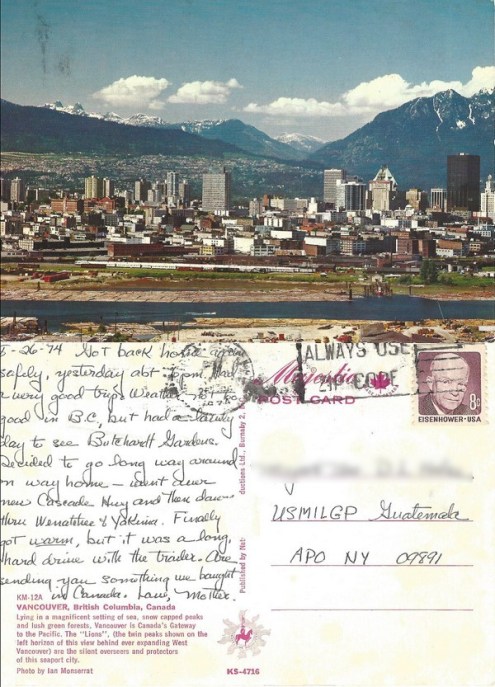 5-26-74 Got back home again
safely, yesterday abt 5 pm. Had
a very good trip. Weather not too
good in B.C, but had a lovely
day to see Butchardt Gardens.
Decided to go long way around
on way home – went over
new Cascade Hwy and then down
thru Wenatchee & Yakima. Finally
got warm, but it was a long,
hard drive with the trailer. Are
sending you something we bought
in Canada. Love, Mother.
KM-12A
VANCOUVER, British Columbia, Canada
Lying in a magnificent setting of sea, snow capped peaks
and lush green forests, Vancouver is Canada's Gateway
to the Pacific. The "Lions", (the twin peaks shown on the
left horizon of this view behind ever expanding West
Vancouver) are the silent overseers and protectors
of this seaport city.
Photo by Ian Monserrat
Published by Nat
ductions Ltd., Burnaby 2, B
Majestic
POST CARD
ALWAYS USE
ZIP CODE
8c
EISENHOWER·USA
USMILGP Guatemala
APO NY 09891
KS-4716